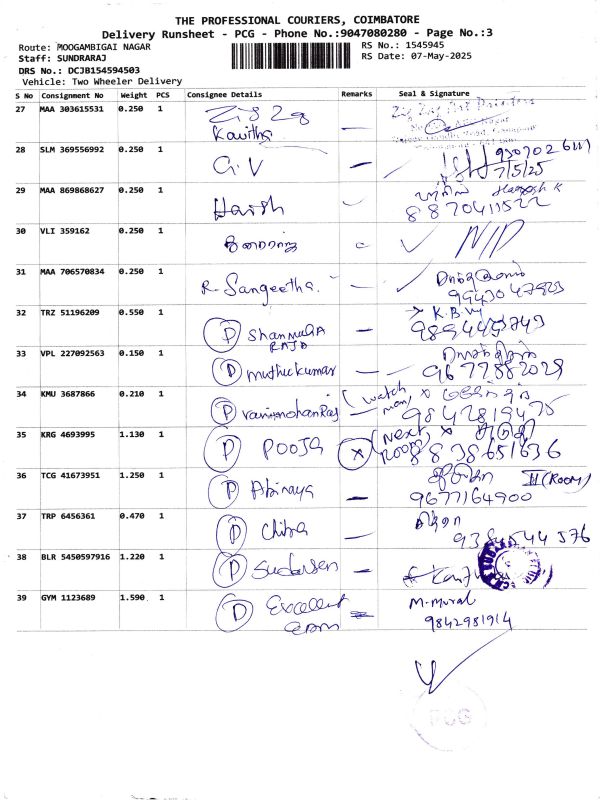 THE PROFESSIONAL COURIERS, COIMBATORE
Delivery Runsheet - PCG - Phone No.:9047080280 - Page No.:3
Route: MOOGAMBIGAI NAGAR RS No.: 1545945
Staff: SUNDRARAJ RS Date: 07-May-2025
DRS No.: DCJB154594503
Vehicle: Two Wheeler Delivery
S No Consignment No Weight PCS Consignee Details Remarks Seal & Signature
27 MAA 303615531 0.250 1 Zig Zag
Kavitha
28 SLM 369556992 0.250 1 G.V
7/5/25
29 MAA 869868627 0.250 1 Harish
8870411522
30 VLI 359162 0.250 1 N/D
31 MAA 706570834 0.250 1 R. Sangeetha
32 TRZ 51196209 0.550 1 D Shanmuga K.B.
RAJD
33 VPL 227092563 0.150 1 D muthukumar
9677882029
34 KMU 3687866 0.210 1 D (watch man)
9842819475
35 KRG 4693995 1.130 1 D POOJA X (Next Room)
8838651636
36 TCG 41673951 1.250 1 D Abinaya II (ROOM)
9677164900
37 TRP 6456361 0.470 1 D Chitra
9384544376
38 BLR 5450597916 1.220 1 D Sudarsen
39 GYM 1123689 1.590 1 D Excellent M. Mural
9842981914
PCG